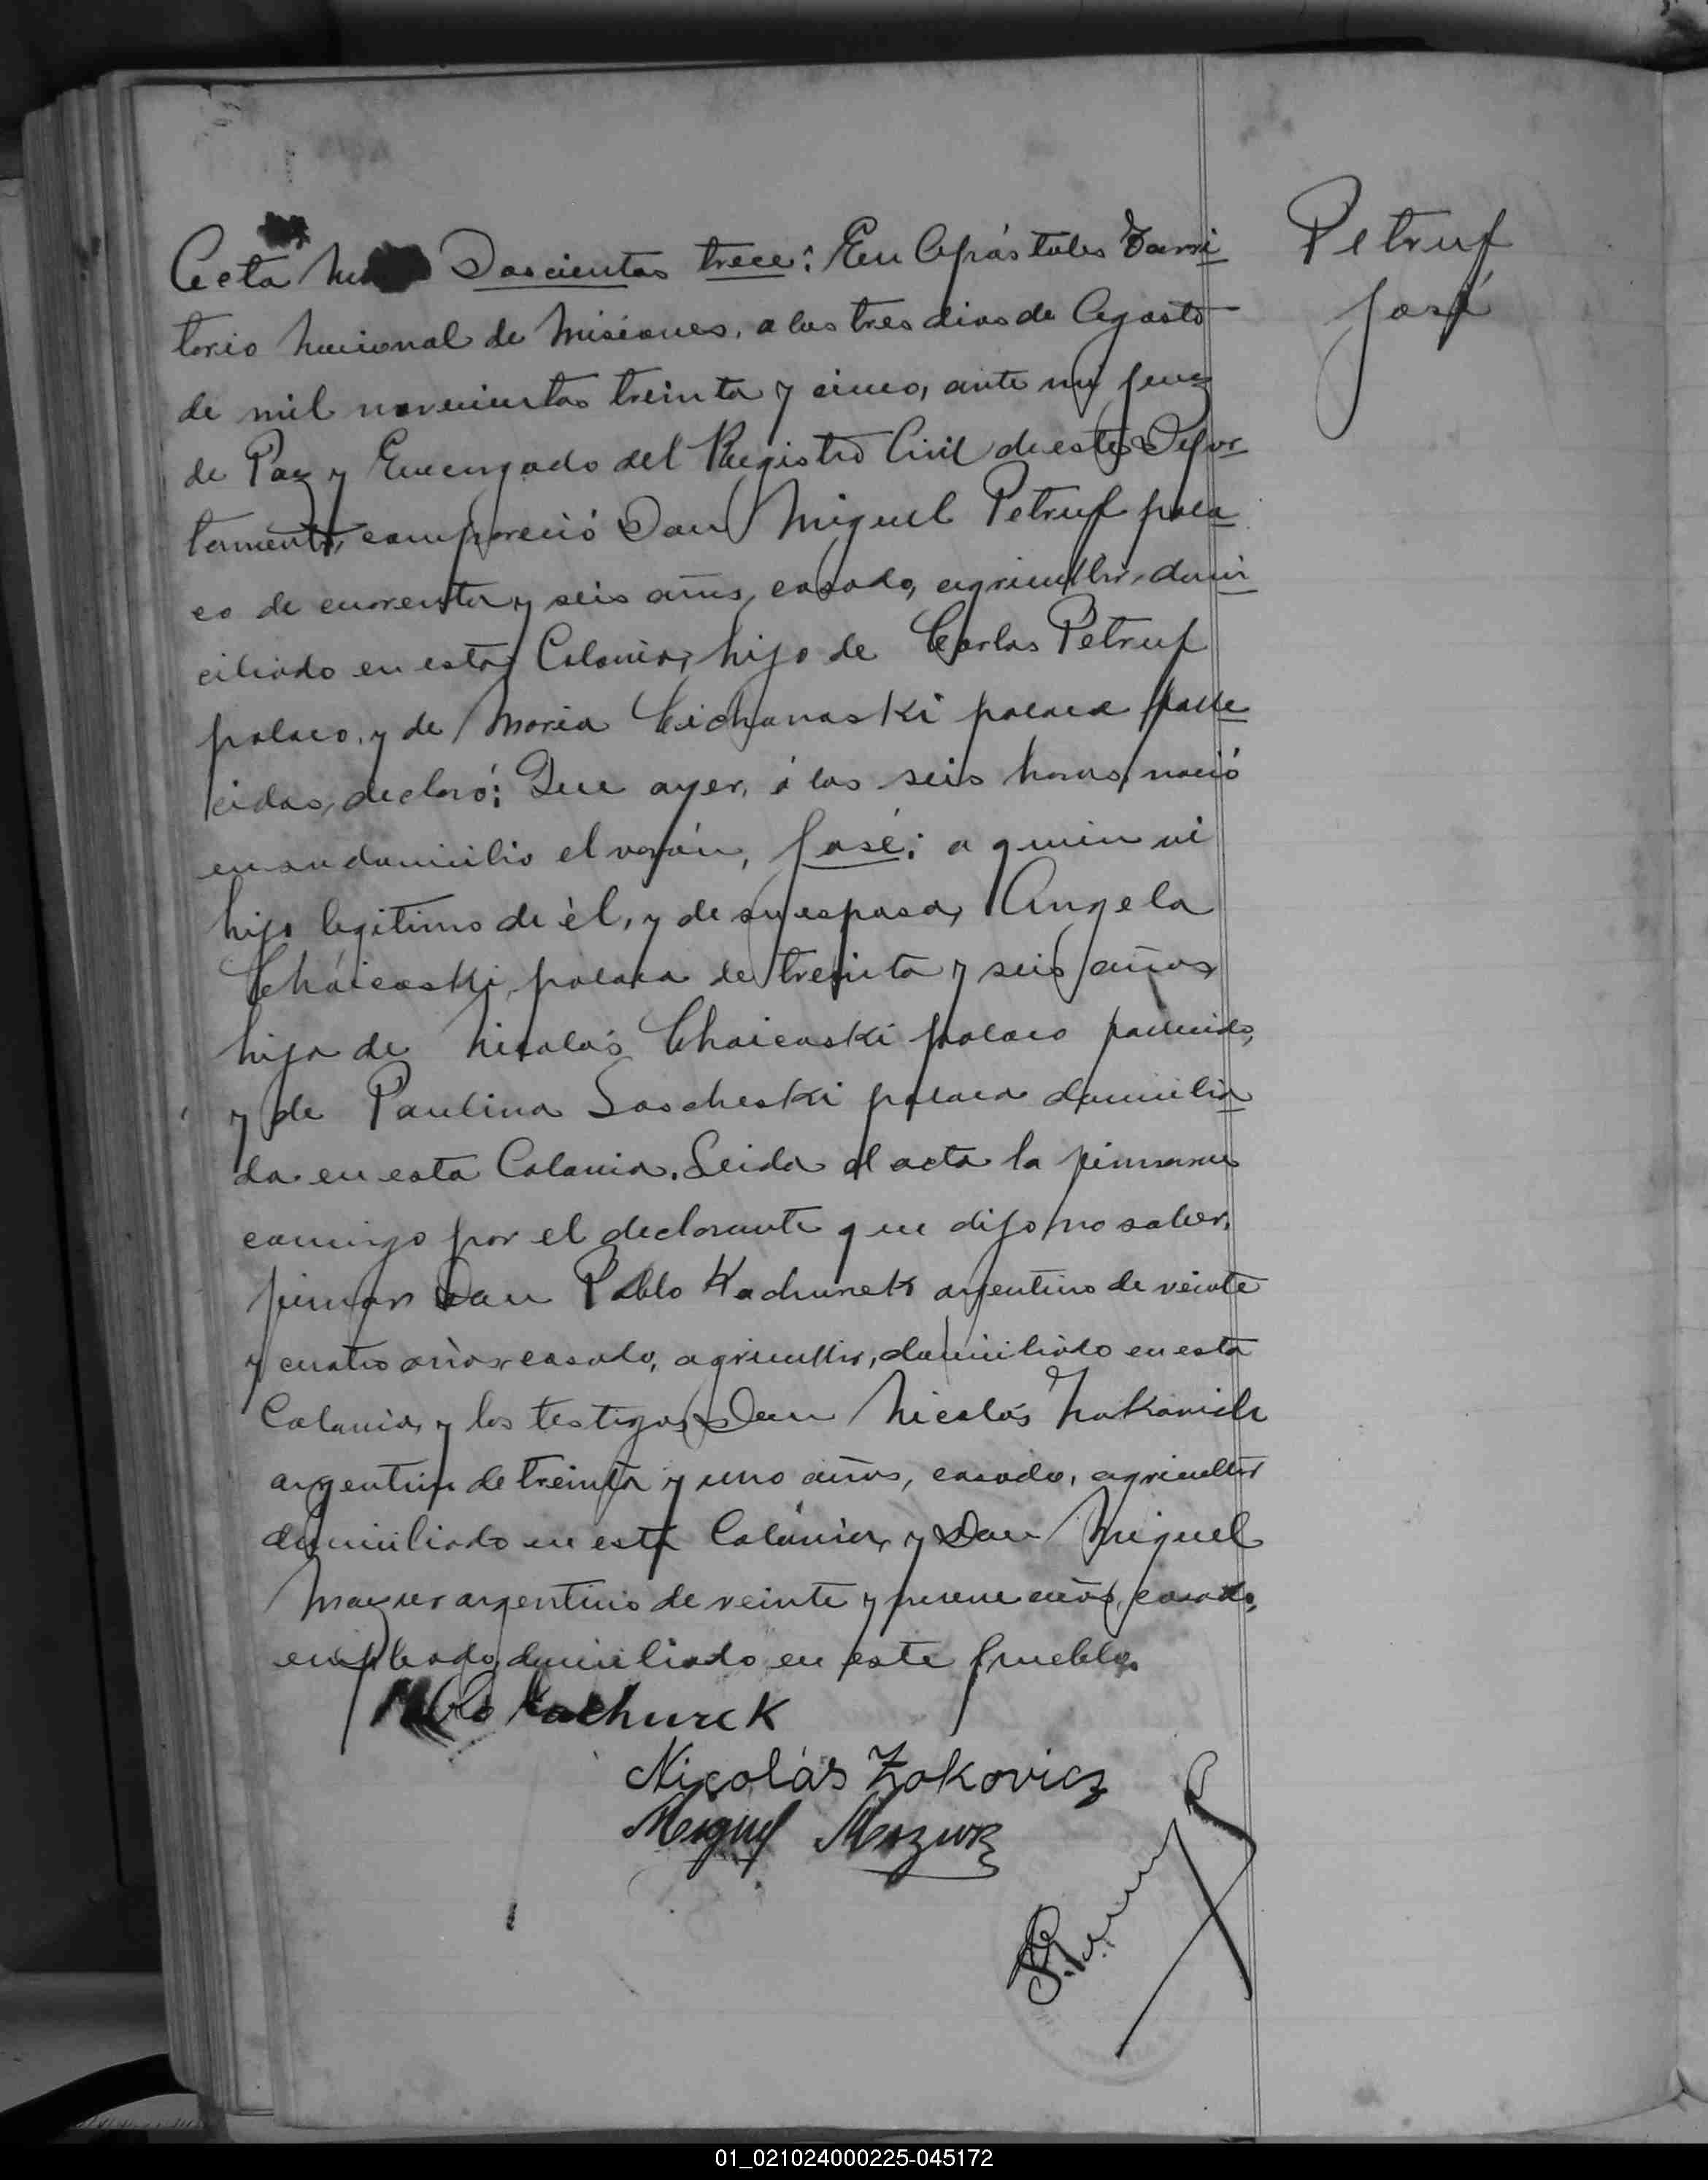 Petruf
José
Acta Doscientos trece: En Apóstoles Terri
torio Nacional de Misiones, a los tres dias de Agosto
de mil novecientos treinta y cinco, ante mi Juez
de Paz y Encargado del Registro Civil de este Depar
tamento, compareció Don Miguel Petruf pola
co de cuarenta y seis años, casado, agricultor, domi
ciliado en esta Colonia, hijo de Carlos Petruf
polaco, y de Maria Cichanoski polaca falle
cidos, declaró: Que ayer, á las seis horas, nació
en su domicilio el varón, José: a quien vi
hijo legitimo de él, y de su esposa, Angela
Chaicoski, polaca de treinta y seis años,
hija de Nicolás Chaicoski polaco fallecido,
y de Paulina Soscheski polaca domicilia
da en esta Colonia. Leida el acta la firmaron
conmigo por el declarante que dijo no saber,
firmar Don Pablo Kachurek argentino de veinte
y cuatro años casado, agricultor, domiciliado en esta
Colonia, y los testigos Don Nicolás Zakovich
argentino de treinta y uno años, casado, agricultor
domiciliado en esta Colonia, y Don Miguel
Mazur argentino de veinte y nueve años, casado,
empleado, domiciliado en este pueblo.
Pablo Kachurek
Nicolás Zakovicz
Miguel Mazur
01_021024000225-045172